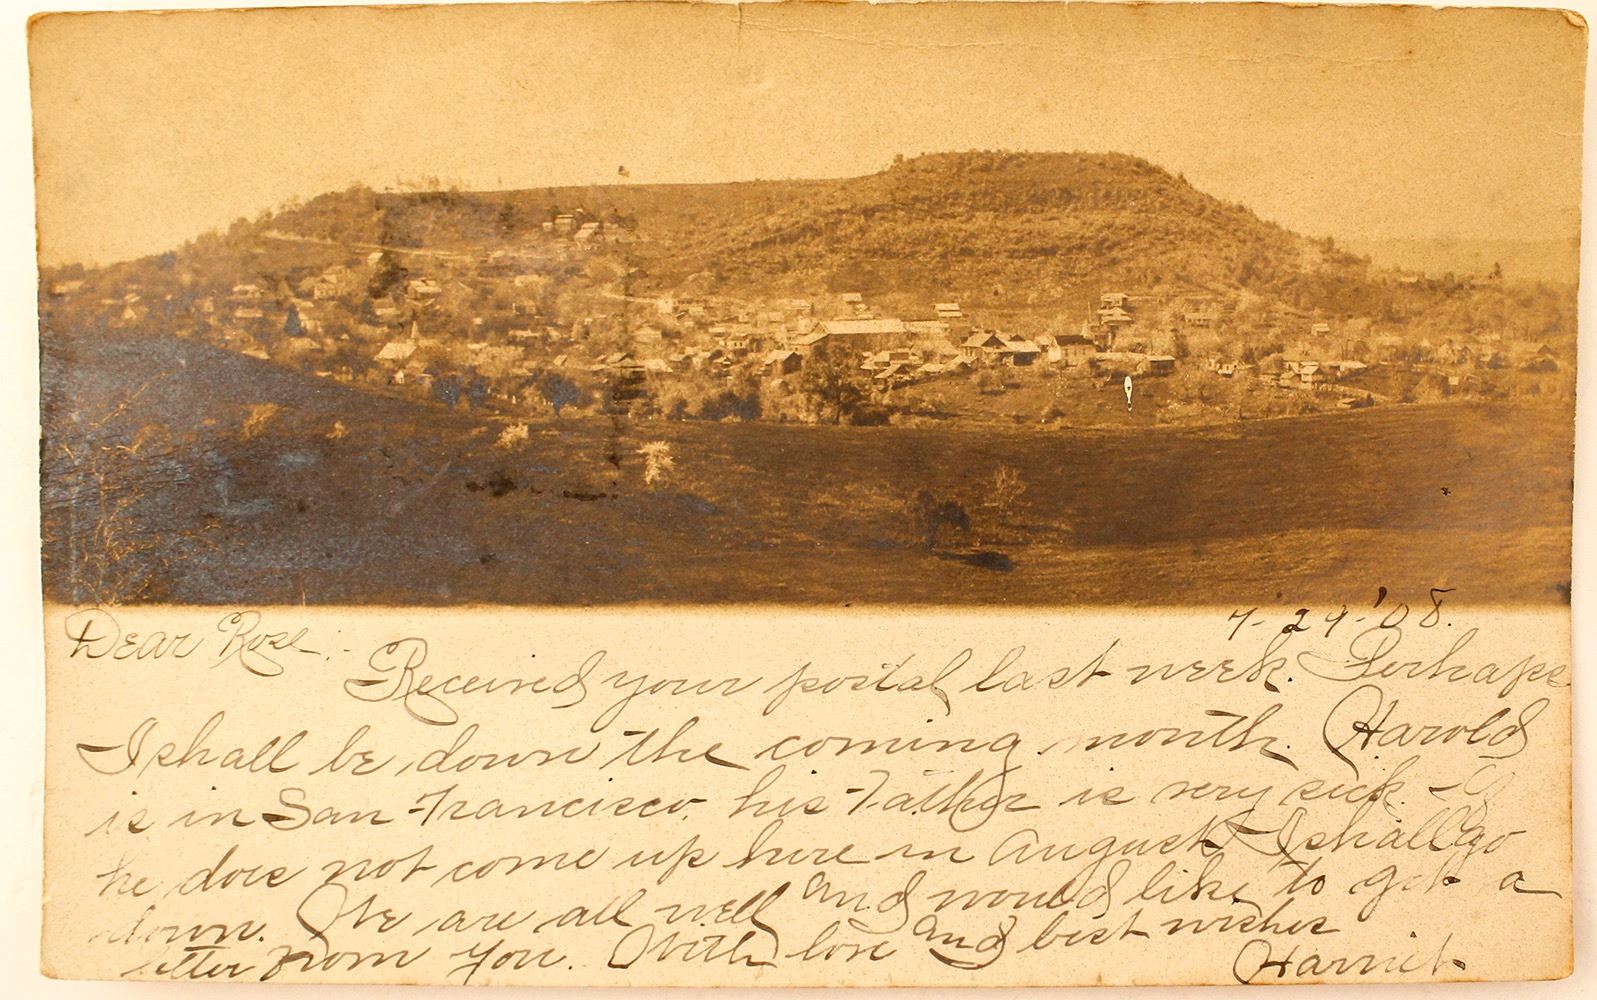 7-29-'08.
Dear Rose:-
Received your postal last week. Perhaps
I shall be down the coming month. Harold
is in San Francisco, his Father is very sick. - If
he does not come up here in August I shall go
down. We are all well and would like to get a
letter from you. With love and best wishes
Harriet.